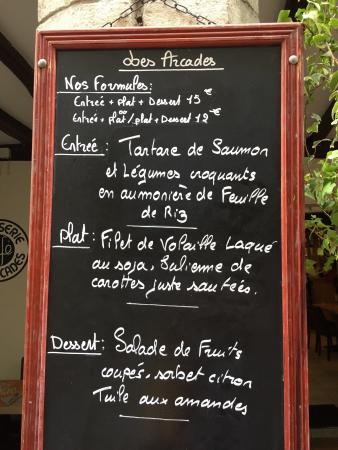 Les Arcades
Nos Formules:
Entrée + plat + Dessert 15 €
Entrée + plat ou / plat + Dessert 12 €
Entrée: Tartare de Saumon
et Légumes croquants
en aumonière de Feuille
de Riz
plat: Filet de Volaille Laqué
au soja, Julienne de
carottes juste sautées.
Dessert: Salade de Fruits
coupés, sorbet citron
Tuile aux amandes